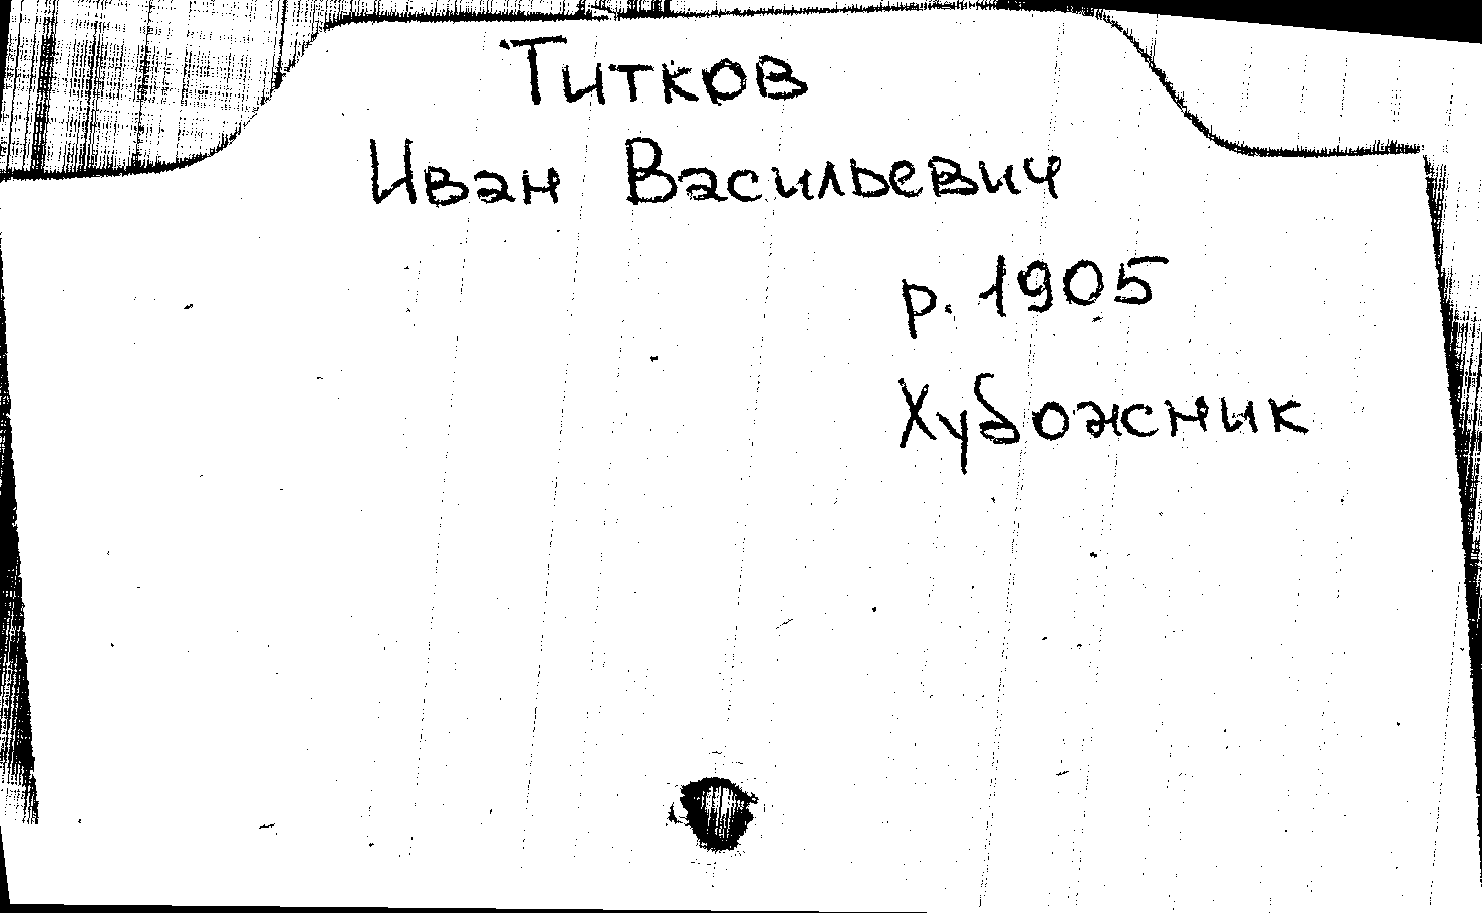 Титков
Иван Васильевич
р. 1905
Художник